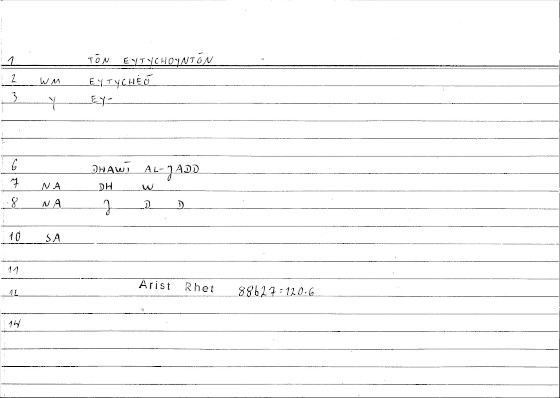 1 TŌN EYTYCHOYNTŌN
2 WM EYTYCHĒŌ
3 Y EY-
6 DHAWĪ AL-JADD
7 NA DH W
8 NA J D D
10 SA
11
12 Arist Rhet 88b27=120.6
14